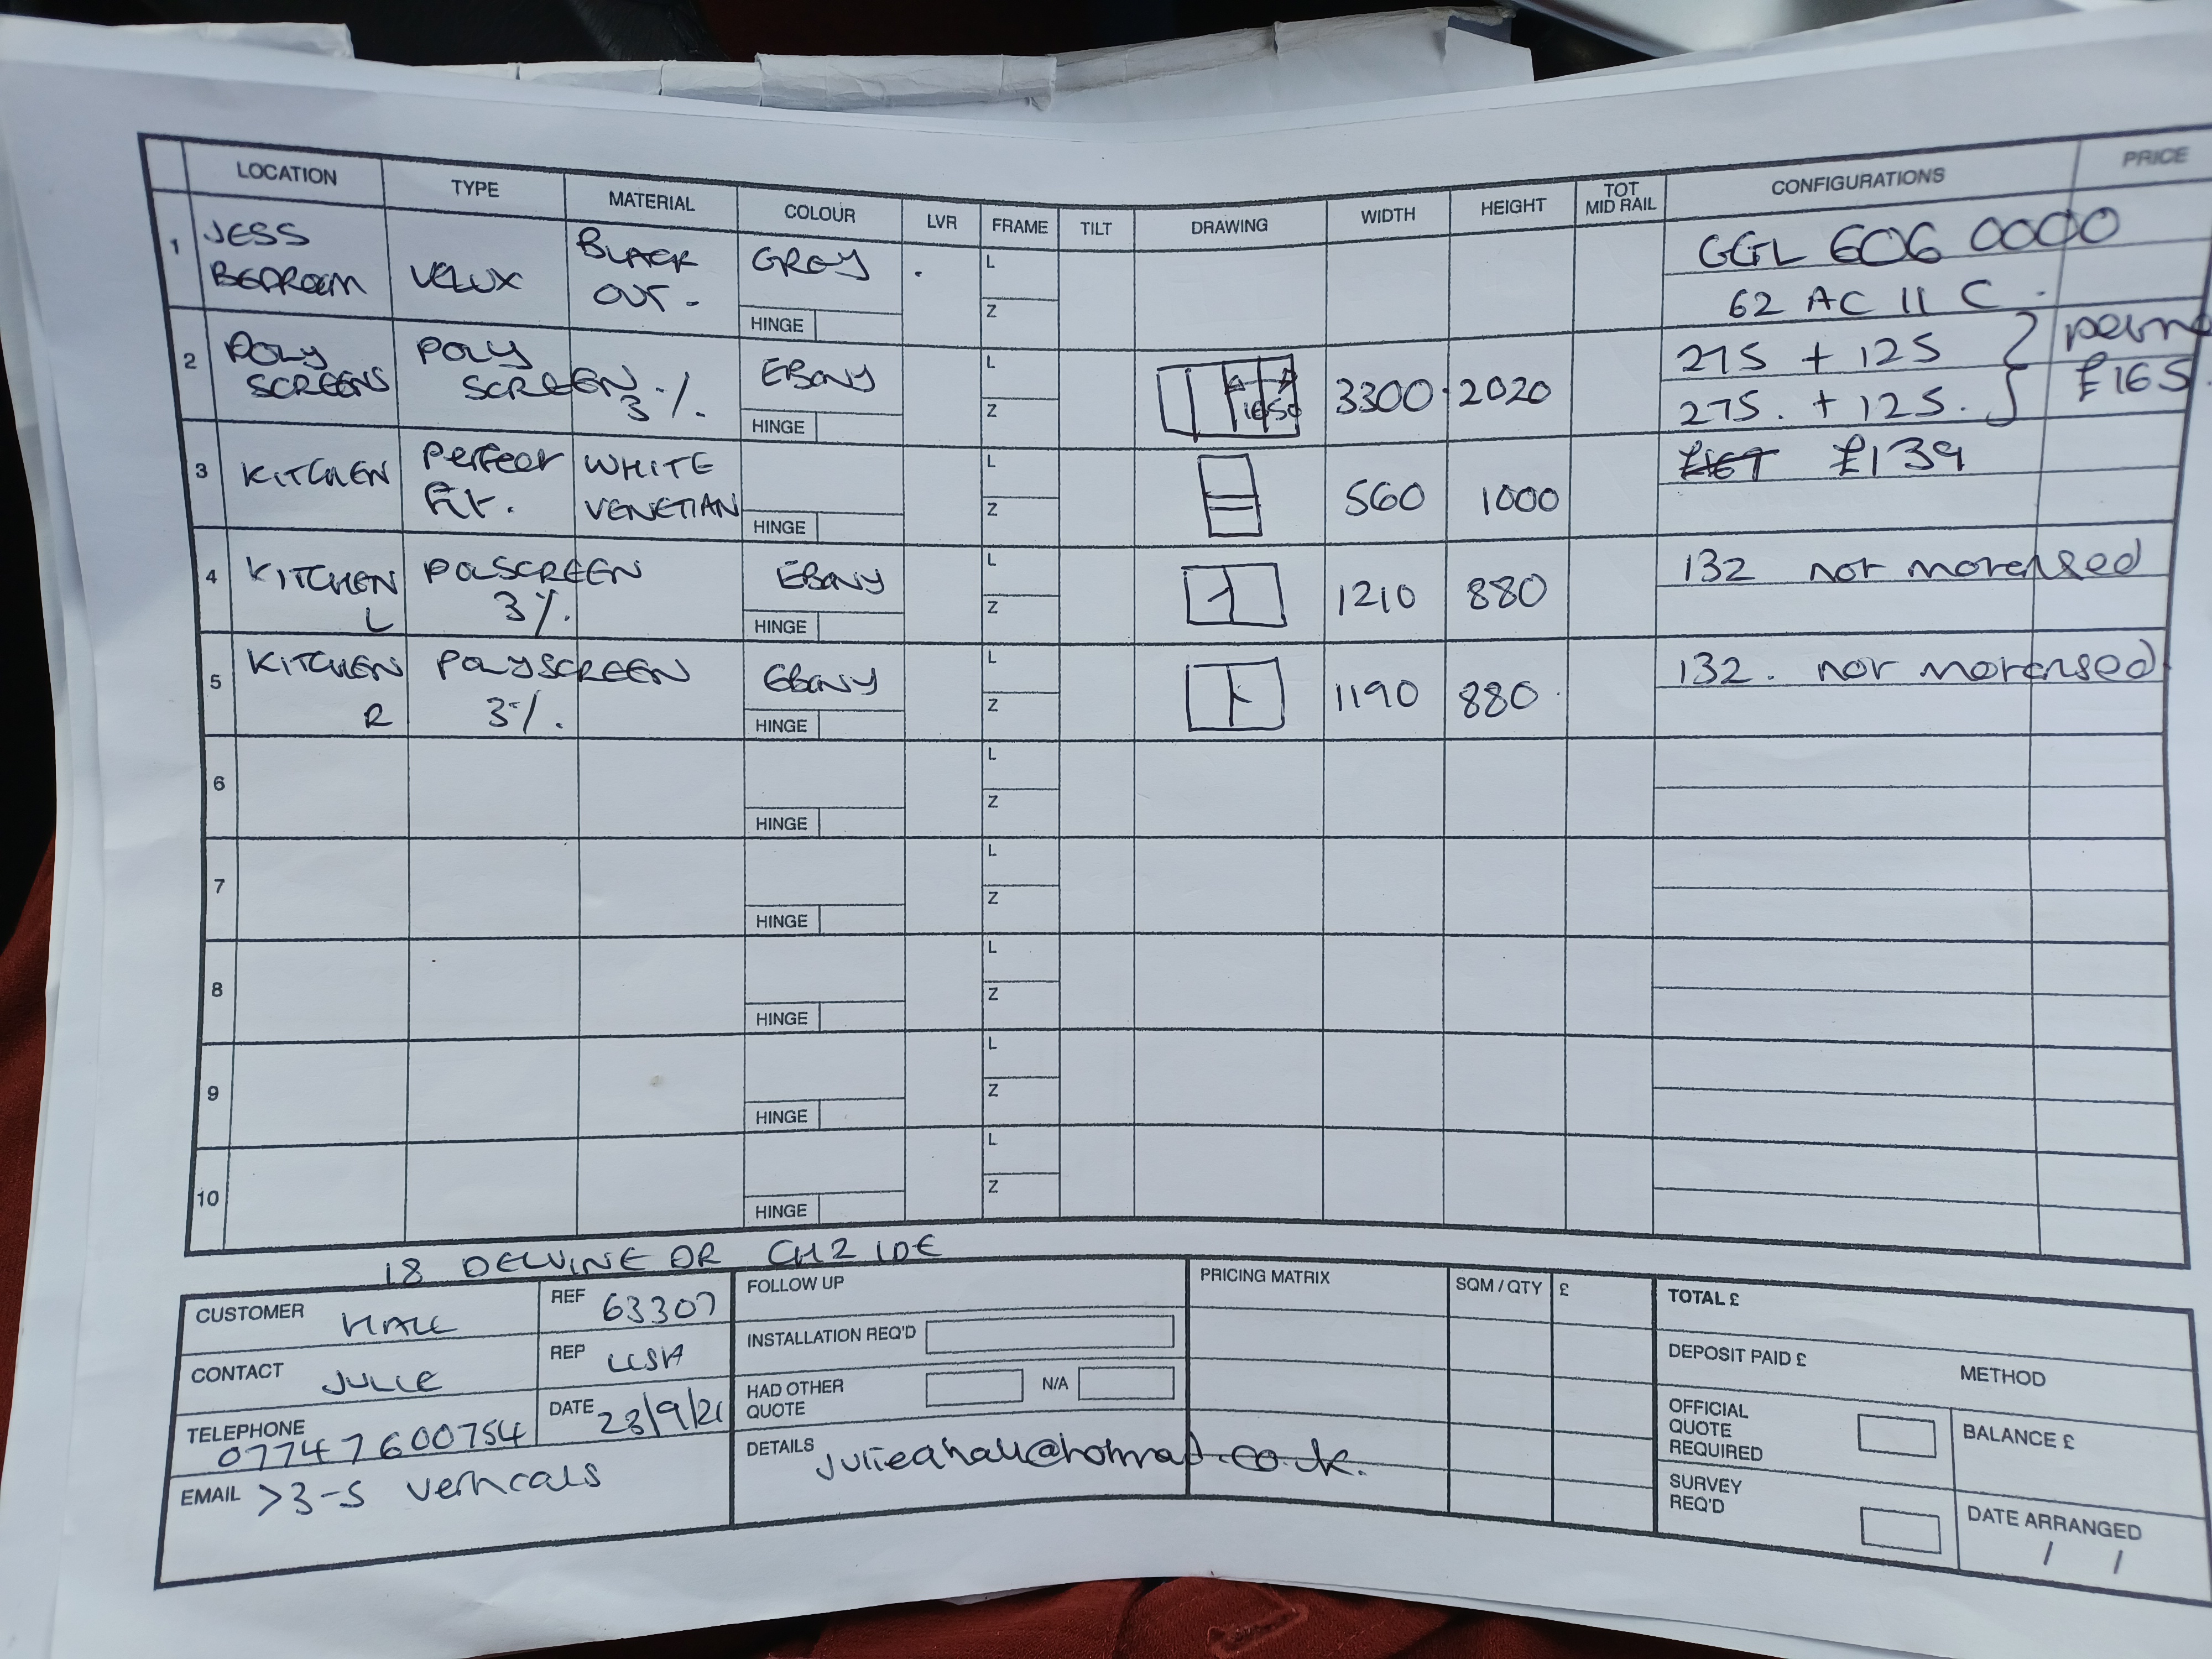 LOCATION TYPE MATERIAL COLOUR LVR FRAME TILT DRAWING WIDTH HEIGHT TOT MID RAIL CONFIGURATIONS PRICE
1 JESS BEDROOM VELUX BLACK OUT - GREY HINGE L Z GGL 606 0000
62 AC 11 C .
2 POLY SCREENS POLY SCREEN 3 % EBONY HINGE L Z 1650 3300 2020 275 + 125
275 . + 125 . £165 .
3 KITCHEN Perfect Fit . WHITE VENETIAN HINGE L Z 560 1000 £139
4 KITCHEN L POLSCREEN 3 % . EBONY HINGE L Z 1210 880 132 not motorised
5 KITCHEN R POLYSCREEN 3 % . EBONY HINGE L Z 1190 880 132 . not motorised
6 HINGE L Z
7 HINGE L Z
8 HINGE L Z
9 HINGE L Z
10 HINGE L Z
18 DELVINE DR CH2 1DE
CUSTOMER HALL REF 63307
CONTACT JULIE REP LISA
TELEPHONE 07747600754 DATE 23/9/21
EMAIL >3-5 verticals
FOLLOW UP
INSTALLATION REQ'D
HAD OTHER QUOTE N/A
DETAILS
PRICING MATRIX SQM / QTY £
TOTAL £
DEPOSIT PAID £ METHOD
OFFICIAL QUOTE REQUIRED BALANCE £
SURVEY REQ'D DATE ARRANGED / /